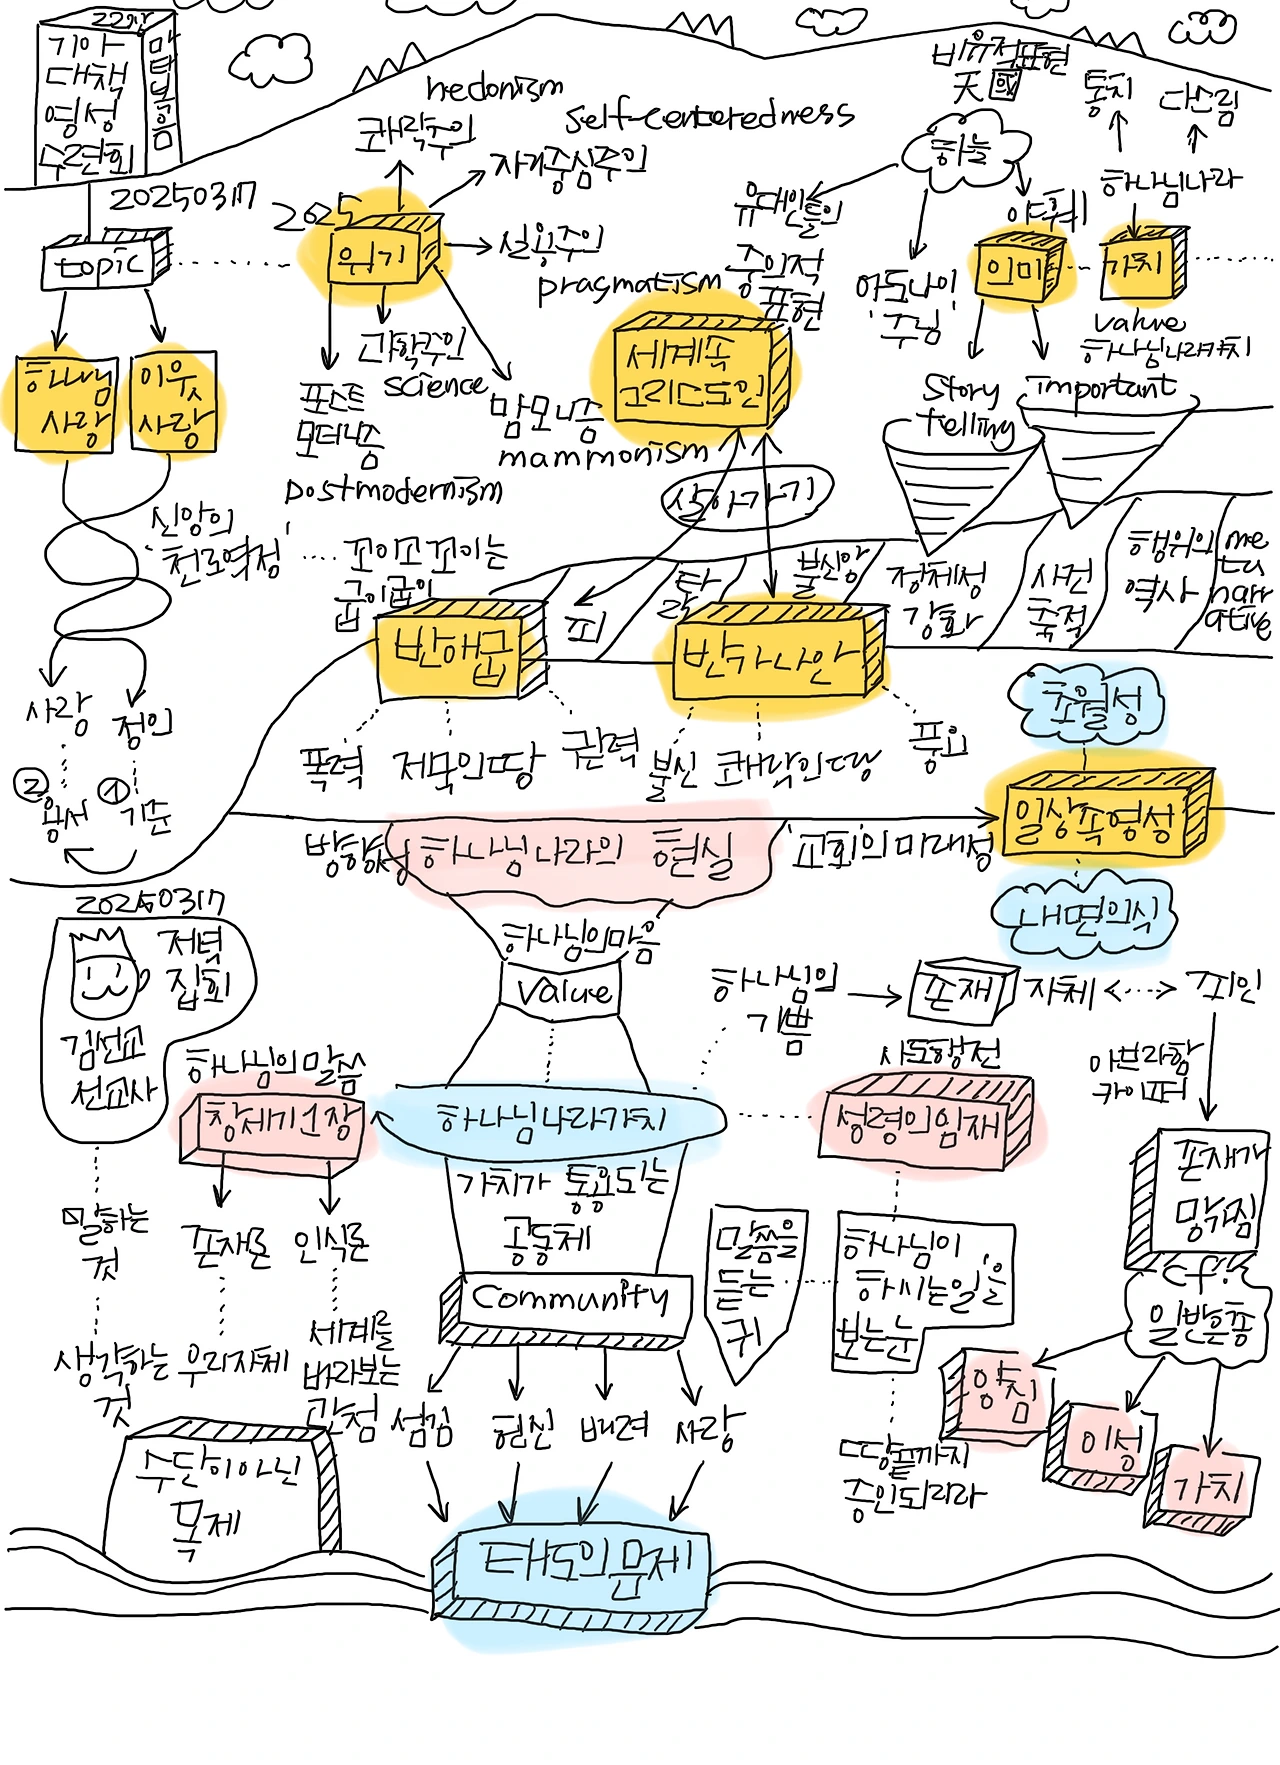 22장
기아
대책
영성
수련회
마태복음
20250317
topic
하나님
사랑
이웃
사랑
신앙의
'천로역정'
꼬이고 꼬이는
사랑
정의
②
용서
①
기준
2025
위기
hedonism
쾌락주의
self-centeredness
자기중심주의
실용주의
pragmatism
과학주의
science
포스트
모더니즘
postmodernism
맘모니즘
mammonism
세계속
그리스도인
살아가기
비유적표현
天國
하늘
유대인들의
중의적
표현
아도나이
'주님'
야훼
의미
통치
다스림
하나님나라
가치
value
하나님나라가치
story
telling
important
피
탈
불신앙
정체성
강화
사건
축적
행위의
역사
me
ta
narr
ative
반애굽
반가나안
폭력
제국의땅
권력
불신
쾌락의땅
풍요
초월성
일상속영성
내면의식
방향성
하나님나라의 현실
'교회'의 미래성
하나님의마음
value
하나님나라가치
가치가 통용되는
공동체
community
섬김
헌신
배려
사랑
태도의문제
20250317
저녁
집회
김선교
선교사
말하는
것
생각하는
것
하나님의말씀
창세기1장
존재론
인식론
우리자체
세계를
바라보는
관점
수단이아닌
목제
하나님의
기쁨
존재
자체
죄인
아브라함
카이퍼
존재가
망가짐
cf.
일반은총
양심
이성
가치
사도행전
성령의임재
말씀을
듣는
귀
하나님이
하시는일을
보는눈
땅끝까지
증인되리라